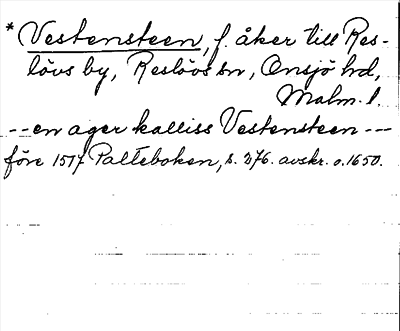 * Vestensteen, f. åker till Res-
lövs by, Reslövs sn, Onsjö hd,
Malm. l.
-- en ager kalliss Vestensteen ---
före 1517 Palteboken, s. 276. avskr. o. 1650.